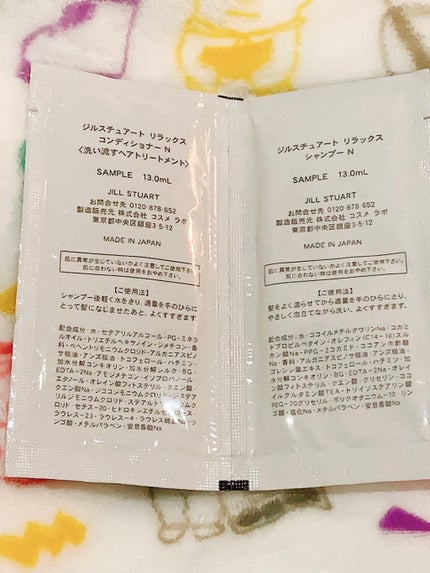 ジルスチュアート リラックス
コンディショナー N
〈洗い流すヘアトリートメント〉
SAMPLE 13.0mL
JILL STUART
お問合せ先 0120-878-652
製造販売元 株式会社 コスメ ラボ
東京都中央区銀座3-5-12
MADE IN JAPAN
肌に異常が生じていないかよく注意してご使用下さい。
肌に合わない時は使用をおやめ下さい。
【ご使用法】
シャンプー後軽く水をきり、適量を手のひらにとって髪になじませたあと、よくすすぎます。
配合成分:水・セテアリルアルコール・PG・ミネラ
ルオイル・トリエチルヘキサノイン・ジメチコン・香
料・ベヘントリモニウムクロリド・アルガニアスピノ
サ核油・アンズ核油・トコフェロール・ハチミツ・
加水分解コンキオリン・加水分解シルク・BG・
EDTA-2Na・アモジメチコン・イソプロパノール・
エタノール・オレイン酸フィトステリル・クエン酸・
クエン酸Na・ココイルアルギニン
ジルスチュアート リラックス
シャンプー N
SAMPLE 13.0mL
JILL STUART
お問合せ先 0120-878-652
製造販売元 株式会社 コスメ ラボ
東京都中央区銀座3-5-12
MADE IN JAPAN
肌に異常が生じていないかよく注意してご使用下さい。
肌に合わない時は使用をおやめ下さい。
【ご使用法】
髪をよく濡らせてから適量を手のひらにとり、
やさしく泡立てながら洗い、よくすすぎます。
配合成分:水・ココイルメチルタウリンNa・コカミ
ドプロピルベタイン・オレフィン(C14-16)スル
ホン酸Na・PPG-2コカミド・ココアンホ酢酸
Na・香料・アルガニアスピノサ核油・アンズ核油・
加水分解コンキオリン・BG・EDTA-2Na・オレイ
ン酸フィトステリル・クエン酸・グリセリン・ココ
イルグルタミン酸TEA・トリイソステアリン酸
PEG-20グリセリル・ポリクオタニウム-10・リン
ゴ酸・塩化Na・メチルパラベン・安息香酸Na